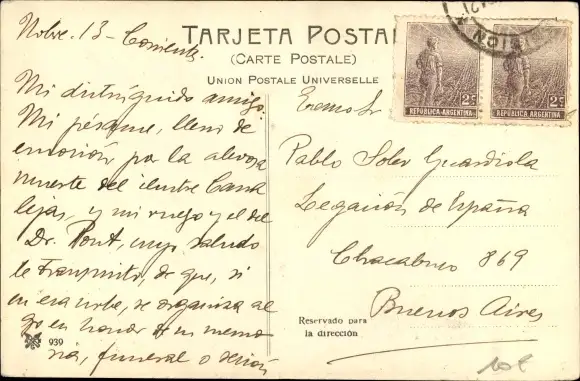 Nobre. 13 - Corrientes.
TARJETA POSTAL
(CARTE POSTALE)
UNION POSTALE UNIVERSELLE
Mi distinguido amigo:
Mi pésame, lleno de
emoción por la alevosa
muerte del ilustre Cana
lejas, y mi ruego y el del
Dr. Pont, cuyo saludo
le transmito, de que, si
en esa urbe, se organiza al
go en honor
memo
ria, funeral o
939
2 C
REPUBLICA ARGENTINA
2 C
REPUBLICA ARGENTINA
Exmo Sr
Pablo Soler Guardiola
Legación de España
Chacabuco 869
Buenos Aires
Reservado para
la dirección